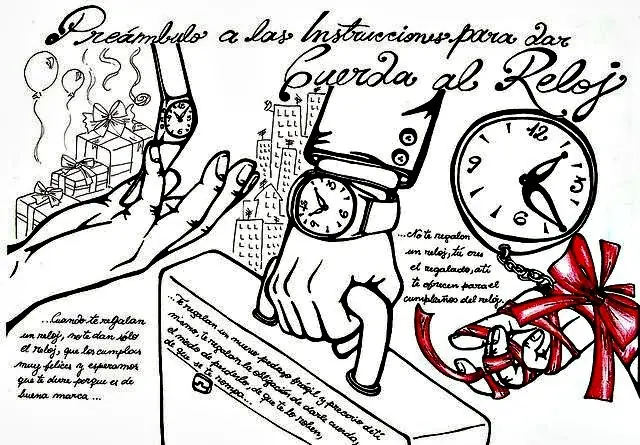 Preámbulo a las Instrucciones para dar
Cuerda al Reloj
...Cuando te regalan
un reloj, no te dan sólo
el reloj, que los cumplas
muy felices y esperamos
que te dure porque es de
buena marca...
...Te regalan un nuevo pedazo frágil y precario de ti
mismo, te regalan la obligación de darle cuerda,
el miedo de perderlo, de que te lo roben,
de que se te rompa...
...No te regalan
un reloj, tú eres
el regalado, a ti
te ofrecen para el
cumpleaños del reloj.
12
3
6
9